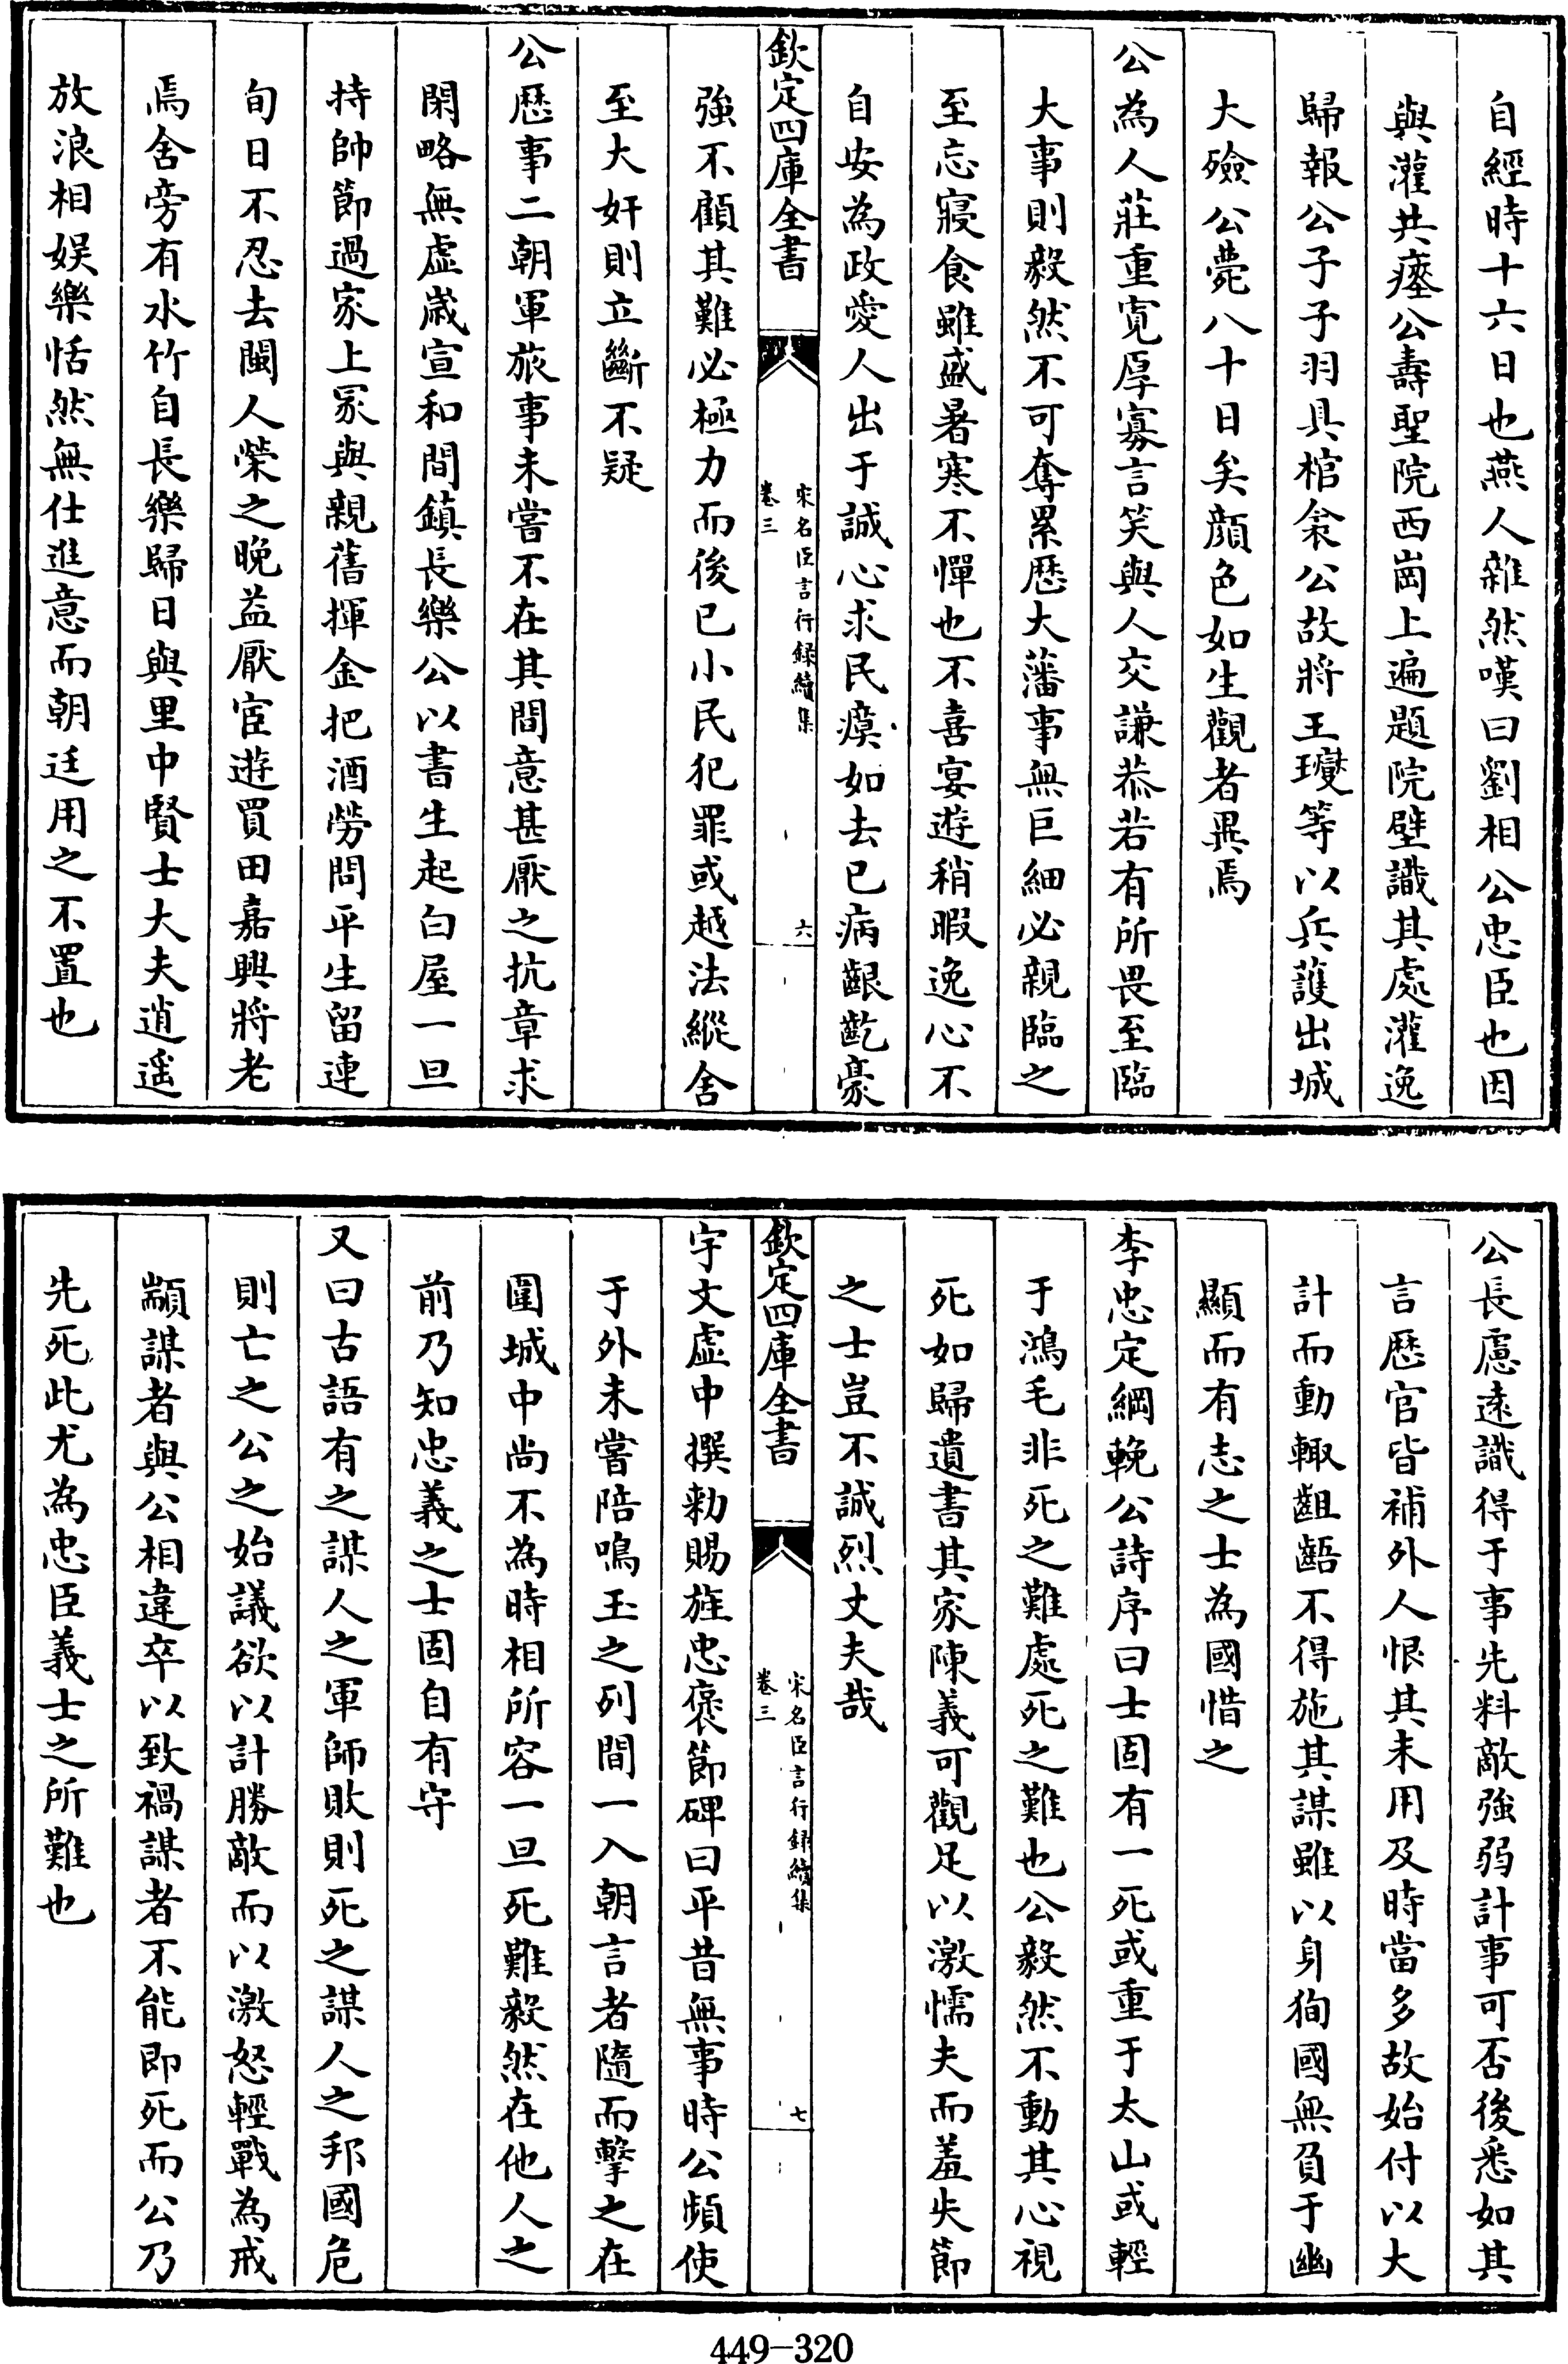 自經時十六日也燕人雜然嘆曰劉相公忠臣也因
與灌共瘞公壽聖院西崗上遍題院壁識其處灌逸
歸報公子子羽具棺衾公故將王𤫉等以兵護出城
大殮公薨八十日矣顔色如生觀者異焉
公為人莊重寛厚寡言笑與人交謙恭若有所畏至臨
大事則毅然不可奪累歷大藩事無巨細必親臨之
至忘寢食雖盛暑寒不憚也不喜宴遊稍暇逸心不
自安為政愛人出于誠心求民瘼如去已病齦齕豪
欽定四庫全書
宋名臣言行録續集
卷三
六
強不顧其難必極力而後已小民犯罪或越法縱舍
至大奸則立斷不疑
公歷事二朝軍旅事未嘗不在其間意甚厭之抗章求
閑略無虛歲宣和間鎮長樂公以書生起白屋一旦
持帥節過家上冢與親舊揮金把酒勞問平生留連
旬日不忍去閩人榮之晚益厭宦遊買田嘉興將老
焉舍旁有水竹自長樂歸日與里中賢士大夫逍遥
放浪相娱樂恬然無仕進意而朝廷用之不置也
公長慮遠識得于事先料敵強弱計事可否後悉如其
言歷官皆補外人恨其未用及時當多故始付以大
計而動輙齟齬不得施其謀雖以身狥國無負于幽
顯而有志之士為國惜之
李忠定綱輓公詩序曰士固有一死或重于太山或輕
于鴻毛非死之難處死之難也公毅然不動其心視
死如歸遺書其家陳義可觀足以激懦夫而羞失節
之士豈不誠烈丈夫哉
欽定四庫全書
宋名臣言行録續集
卷三
七
宇文虛中撰勅賜旌忠褒節碑曰平昔無事時公頻使
于外未嘗陪鳴玉之列間一入朝言者隨而擊之在
圍城中尚不為時相所容一旦死難毅然在他人之
前乃知忠義之士固自有守
又曰古語有之謀人之軍師敗則死之謀人之邦國危
則亡之公之始議欲以計勝敵而以激怒輕戰為戒
顓謀者與公相違卒以致禍謀者不能即死而公乃
先死此尤為忠臣義士之所難也
449-320